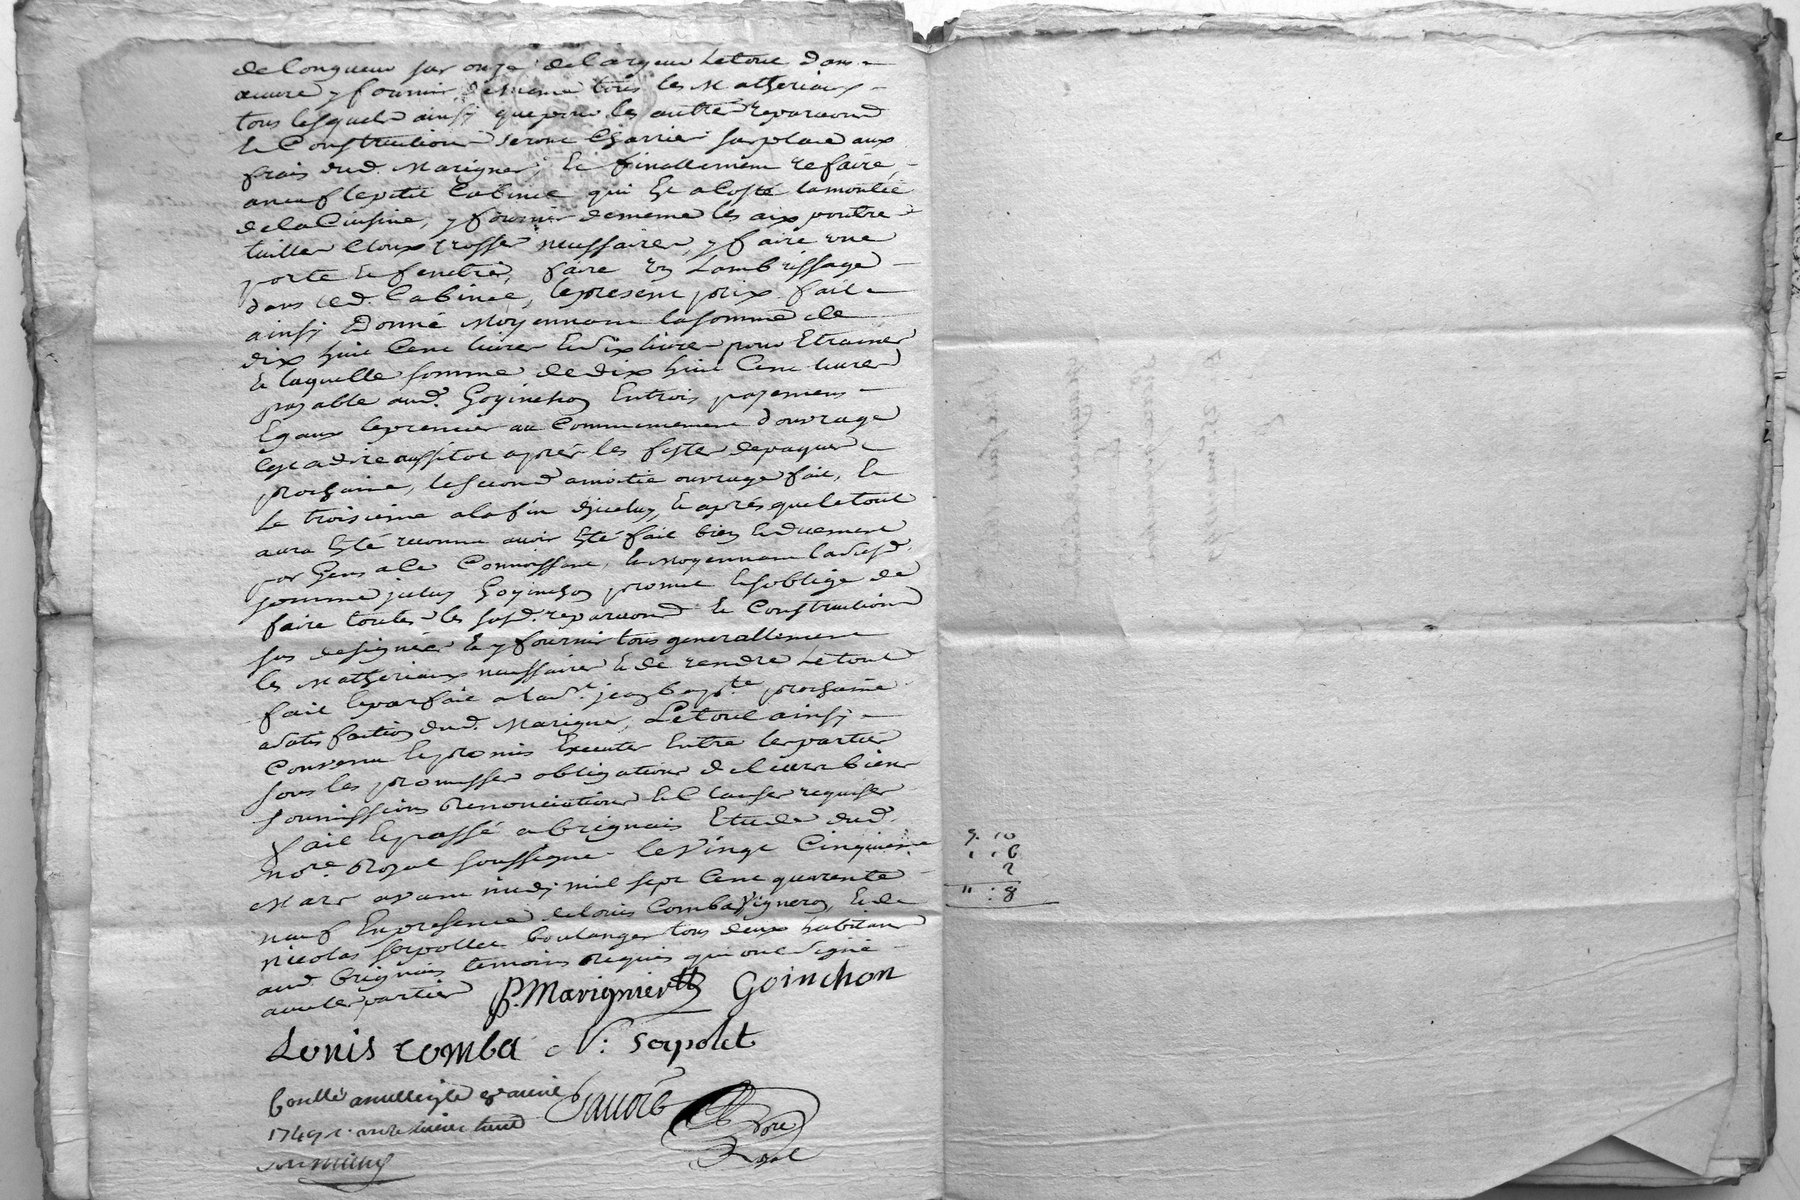 de longueur sur onze de largeur Le tout dans
œuvre y fournir de meme tous les Matheriaux
tous lesquels ainsy que pour les autres reparaõns
Et Constructions seront Charriés sur place aux
frais dud. Marignier, Et finallement refaire
a neuf le petit Cabinet qui Est a Costé la montée
de la Cuisine, y fournir de meme les aix poutre
tuilles Cloux necessaires, y faire une
porte Et fenetre, faire un Lambrissage
dans led. Cabinet, le present prix fait
ainsy Donné Moyennant la somme de
dix huit Cent livres Et six livres pour Etraines
Et laquelle somme de dix huit Cent livres
payable aud. Goyinchon En trois payemens
Egaux le premier au Commencement d'ouvrage
C'est a dire aussitot apres les festes de paques
prochaine, le second a moitié ouvrage fait, Et
Le troisieme a la fin d'jceluy, Et apres que le tout
aura Eté reconnu avoir Eté fait bien Et duement
par Gens a Ce Connoissans, Et Moyennant lad. susd.
somme jceluy Goyinchon promet Et s'oblige de
faire toutes les susd. reparaõns Et Constructions
sus designées Et y fournir tous generallement
les Matheriaux necessaires Et de rendre Le tout
fait Et parfait a la St. jean bapte. prochaine
a satisfaction dud. Marignier, Le tout ainsy
Convenu Et promis Executer Entre les parties
sous les promesses obligations de leurs biens
soumissions Renonciations Et Clauses requises
fait Et passé a brignais Etude dud.
Nore. Royal soussigné le Vingt Cinquieme
Mars avant midy mil sept Cent quarente
neuf En presence de Louis Comba Vigneron, Et de
Nicolas serpollet boulanger tous deux habitans
aud. brignais temoins Requis qui ont Signé
avec les parties
P. Marignier Goinchon
Louis comba N: serpolet
Conllé a
1749
9. 10
6
2
8
Nore
Royal